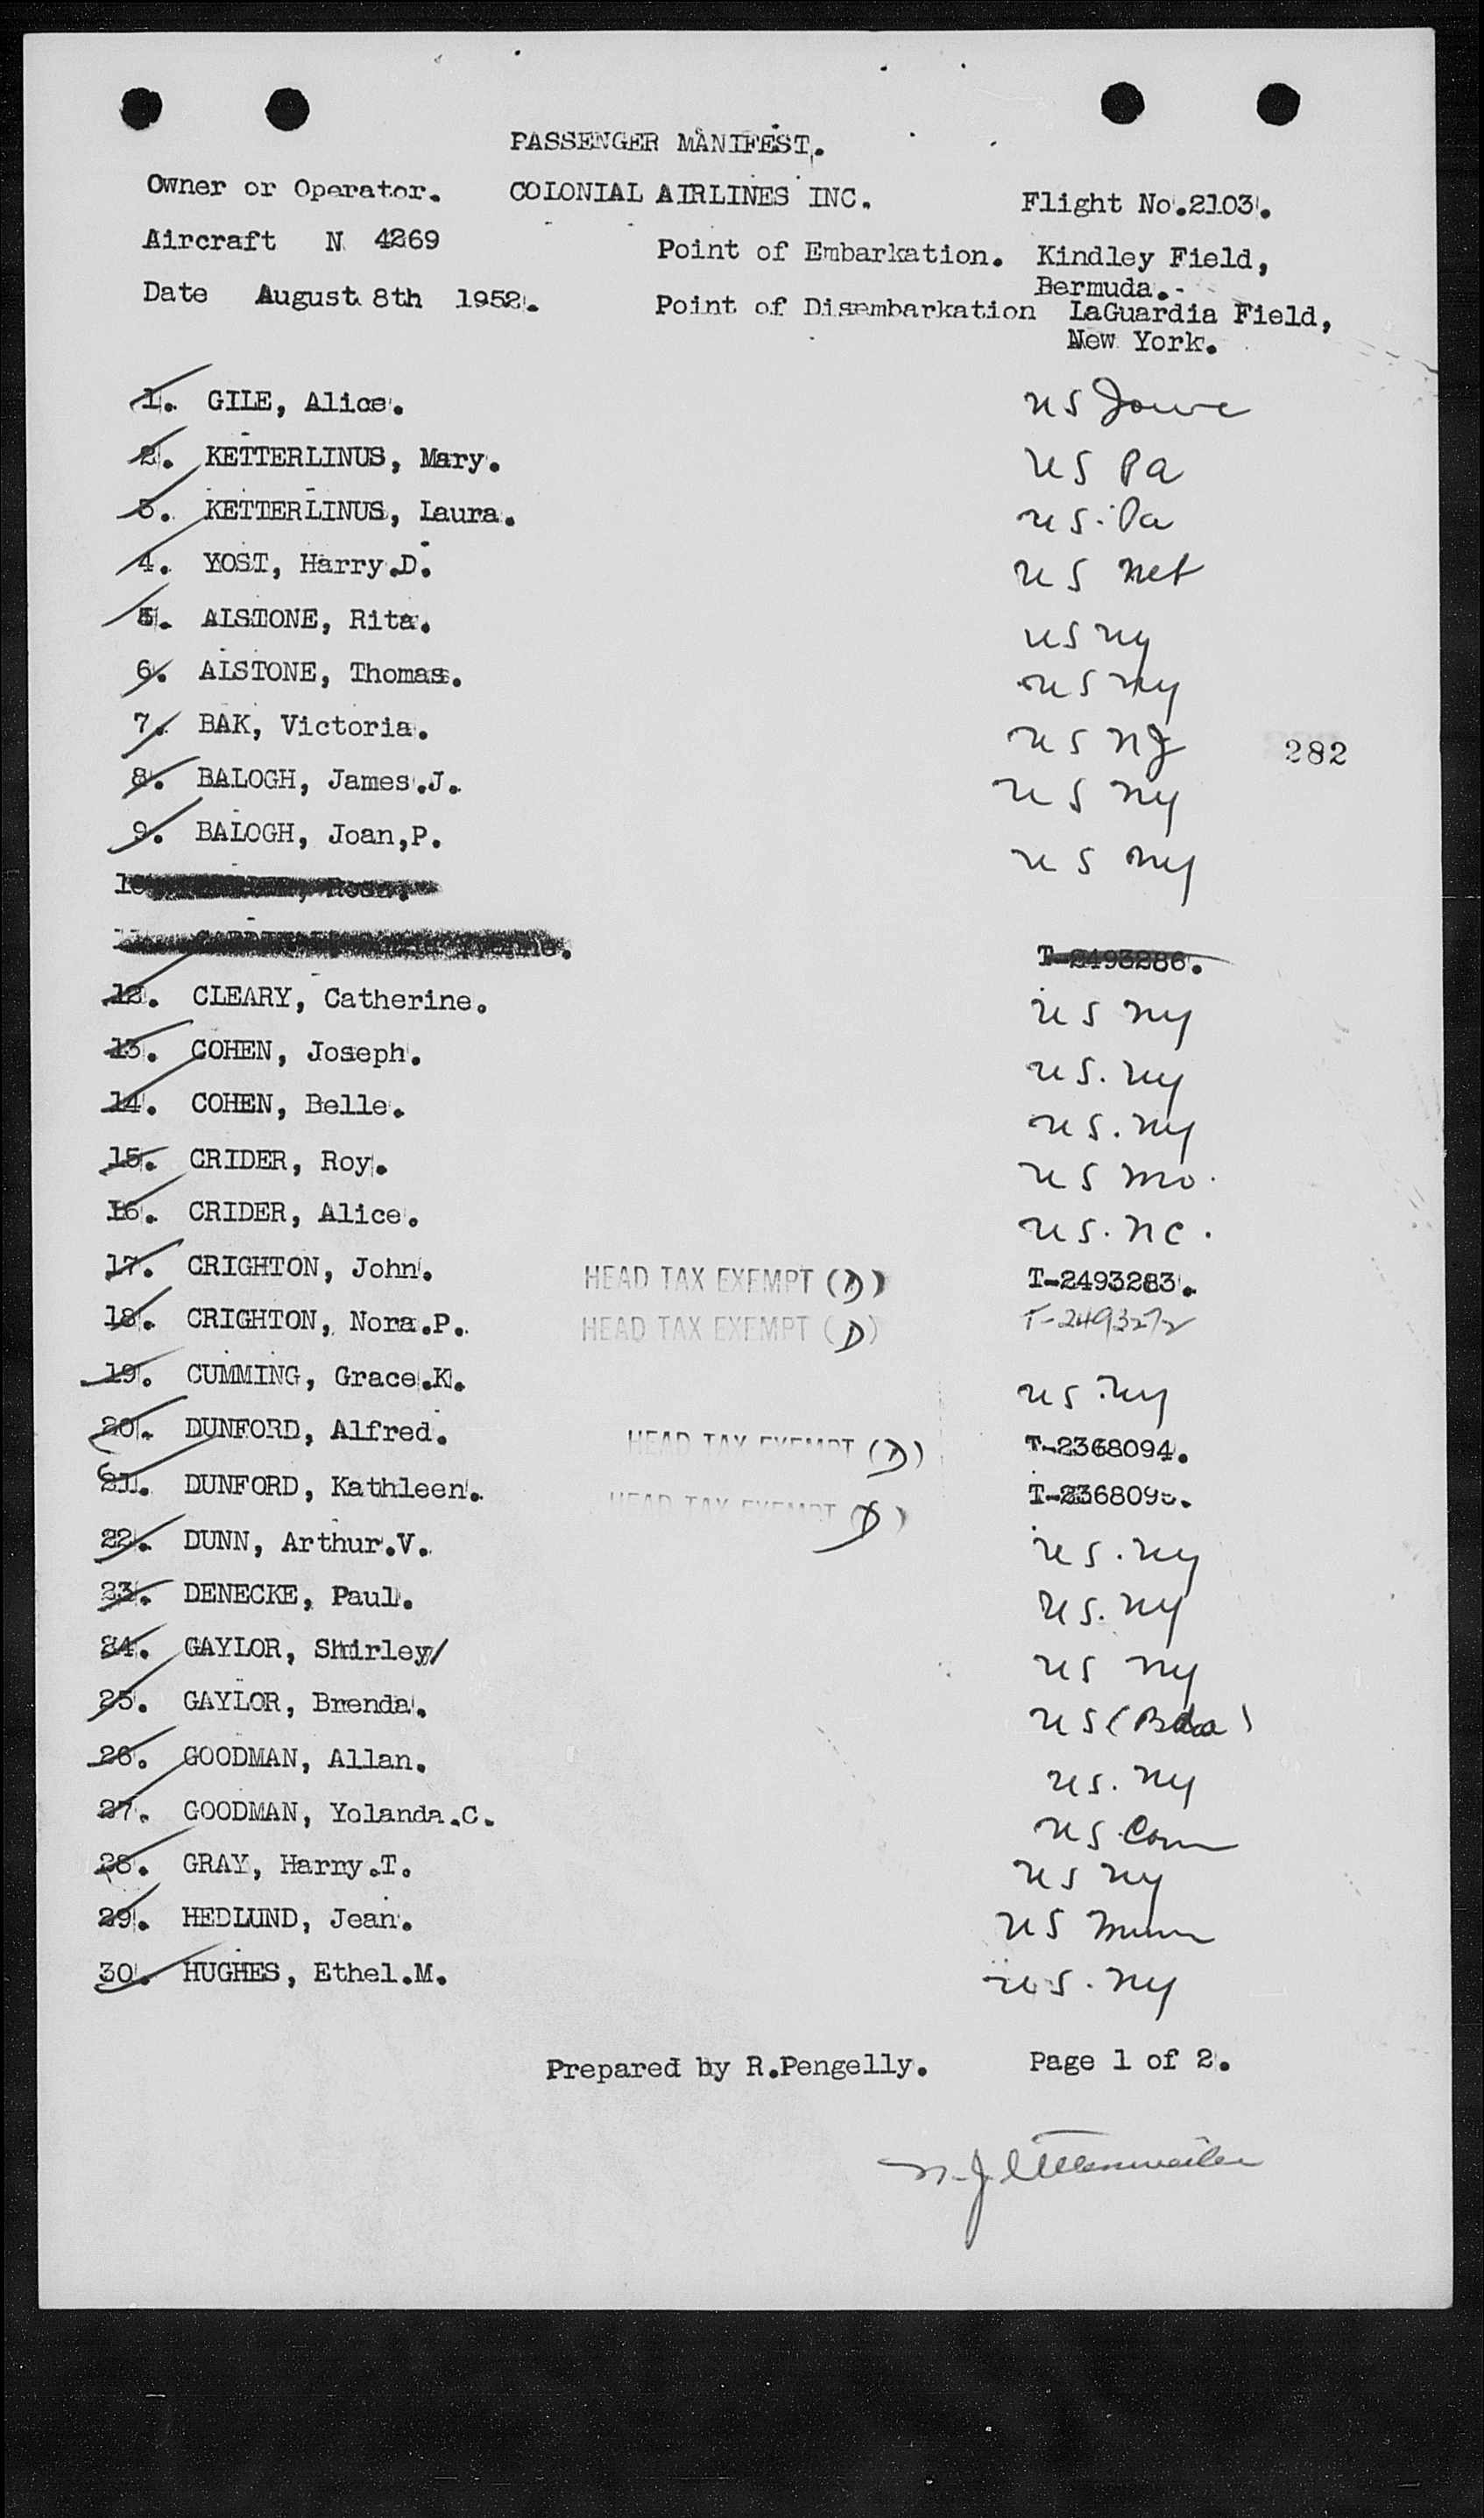 PASSENGER MANIFEST.
Owner or Operator. COLONIAL AIRLINES INC. Flight No.2103.
Aircraft N 4269 Point of Embarkation. Kindley Field,
Bermuda.-
Date August 8th 1952. Point of Disembarkation LaGuardia Field,
New York.
1. GILE, Alice. US Iowa
2. KETTERLINUS, Mary. US Pa
3. KETTERLINUS, Laura. US. Pa
4. YOST, Harry.D. US
5. ALSTONE, Rita. US NY
6. ALSTONE, Thomas. US NY
7. BAK, Victoria. US NJ 282
8. BALOGH, James.J. US NY
9. BALOGH, Joan,P. US NY
10
T-2493286.
12. CLEARY, Catherine. US NY
13. COHEN, Joseph. US. NY
14. COHEN, Belle. US. NY
15. CRIDER, Roy. US Mo.
16. CRIDER, Alice. US. NC.
17. CRIGHTON, John. HEAD TAX EXEMPT (D) T-2493283.
18. CRIGHTON, Nora.P. HEAD TAX EXEMPT (D) T-2493272
19. CUMMING, Grace.K. US. NY
20. DUNFORD, Alfred. HEAD TAX EXEMPT (D) T-2368094.
21. DUNFORD, Kathleen. HEAD TAX EXEMPT (D)
22. DUNN, Arthur.V. US. NY
23. DENECKE, Paul. US. NY
24. GAYLOR, Shirley/ US NY
25. GAYLOR, Brenda. US (Bda)
26. GOODMAN, Allan. US. NY
27. GOODMAN, Yolanda.C. US Conn
28. GRAY, Harry.T. US NY
29. HEDLUND, Jean. US Minn
30. HUGHES, Ethel.M. US. NY
Prepared by R.Pengelly. Page 1 of 2.